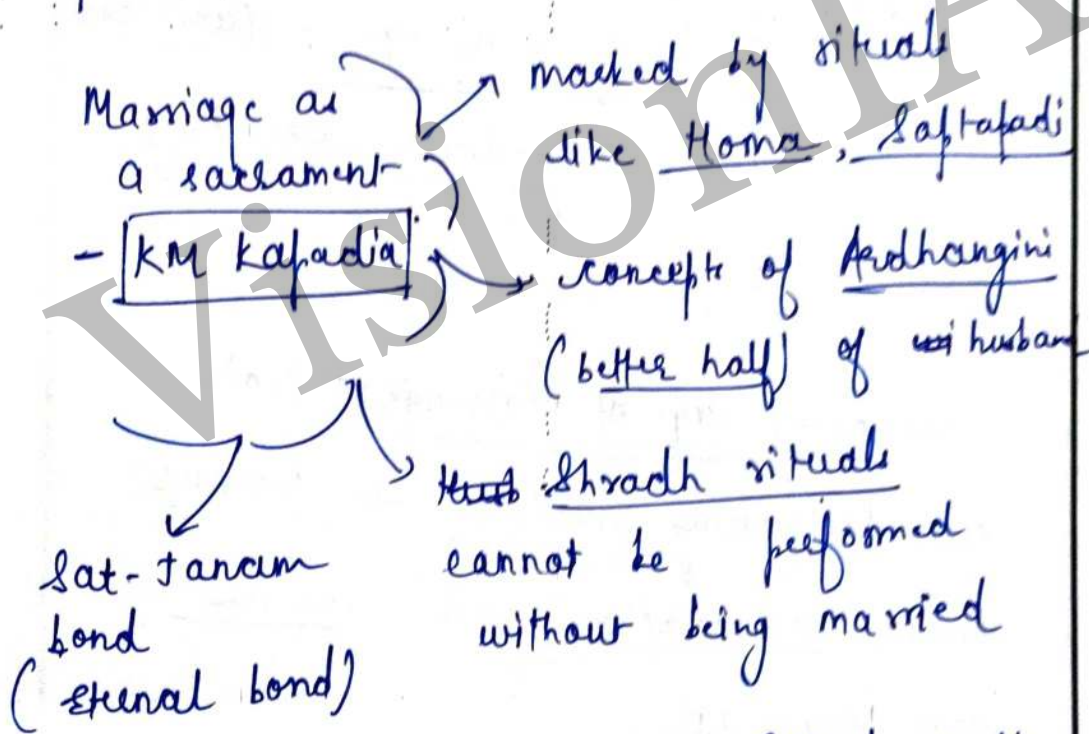 Marriage as
a sacrament
- KM Kapadia
marked by rituals
like Homa, Saptapadi
concept of Ardhangini
(better half) of husban
Shradh rituals
cannot be performed
without being married
Sat-Janam
bond
(Eternal bond)
VisionIA